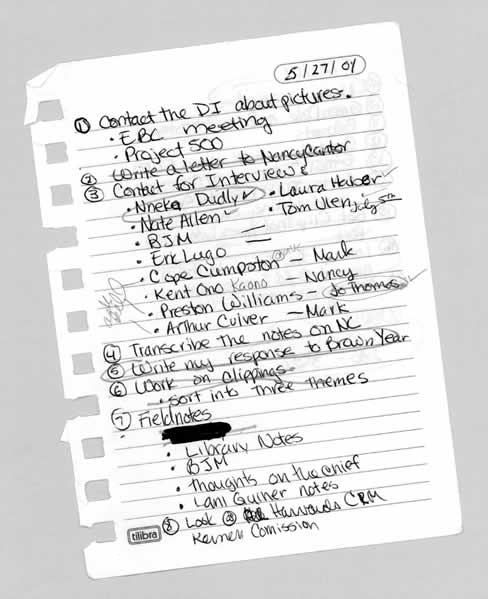 5/27/04
① Contact the DI about pictures.
• EBC meeting
• Project 500
② Write a letter to Nancy Cantor
③ Contact for Interviews
• Nneka Dudly ✓ • Laura Haber ✓
• Nate Allen ✓ • Tom Ulen July 5th
• BJM
• Eric Lugo
• Cope Cumpston — Mark
• Kent Ono Kaono — Nancy
• Preston Williams — Jo Thomas ✓
• Arthur Culver — Mark
④ Transcribe the notes on NC
⑤ Write my response to Brown Year
⑥ Work on Clippings
• sort into three themes
⑦ Fieldnotes
• Library Notes
• BJM
• Thoughts on the chief
• Lani Guiner notes
⑧ Look @ Harvard's CRM
Comission
tilibra